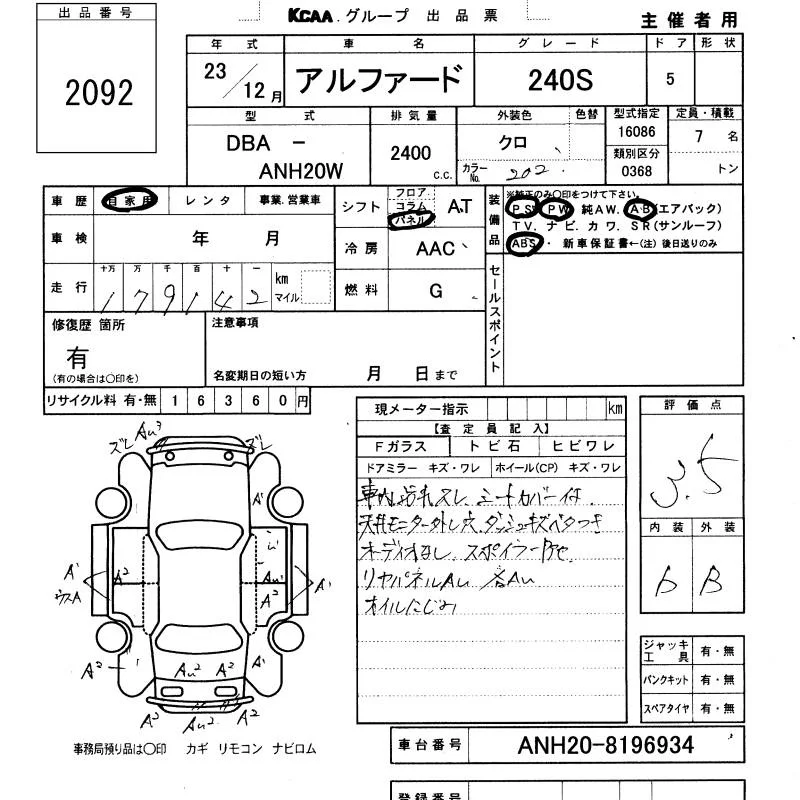 出品番号
2092
KCAA.グループ 出品票
主催者用
年式 車名 グレード ドア 形状
23/12月 アルファード 240S 5
型式 排気量 外装色 色替 型式指定 定員・積載
DBA - ANH20W 2400 c.c. クロ 16086 7名
カラーNo. 202 類別区分 0368 トン
車歴 自家用 レンタ 事業.営業車
シフト フロア コラム パネル AT
車検 年 月
冷房 AAC
走行 十万 万 千 百 十 一 km マイル
179142
燃料 G
装備品
※純正のみ〇印をつけて下さい。
PS PW 純AW. AB(エアバック)
TV. ナビ. カワ. SR(サンルーフ)
ABS・ 新車保証書←(注)後日送りのみ
セールスポイント
修復歴 箇所
有
(有の場合は〇印を)
注意事項
名変期日の短い方 月 日まで
リサイクル料 有・無 16360円
現メーター指示 km
【査定員記入】
Fガラス トビ石 ヒビワレ
ドアミラー キズ・ワレ ホイール(CP) キズ・ワレ
車内汚れスレ シートカバー付
天井モニター外し穴 ダッシュキズベタつき
オーディオなし スポイラー
リヤパネルAu 各Au
オイルにじみ
評価点
3.5
内装 外装
B
ズレ Au3 ズレ
A' A2 A'
ウスA
A2 Au2 A2 A'
A2 Au2 A2
ジャッキ工具 有・無
パンクキット 有・無
スペアタイヤ 有・無
事務局預り品は〇印 カギ リモコン ナビロム
車台番号 ANH20-8196934
登録番号